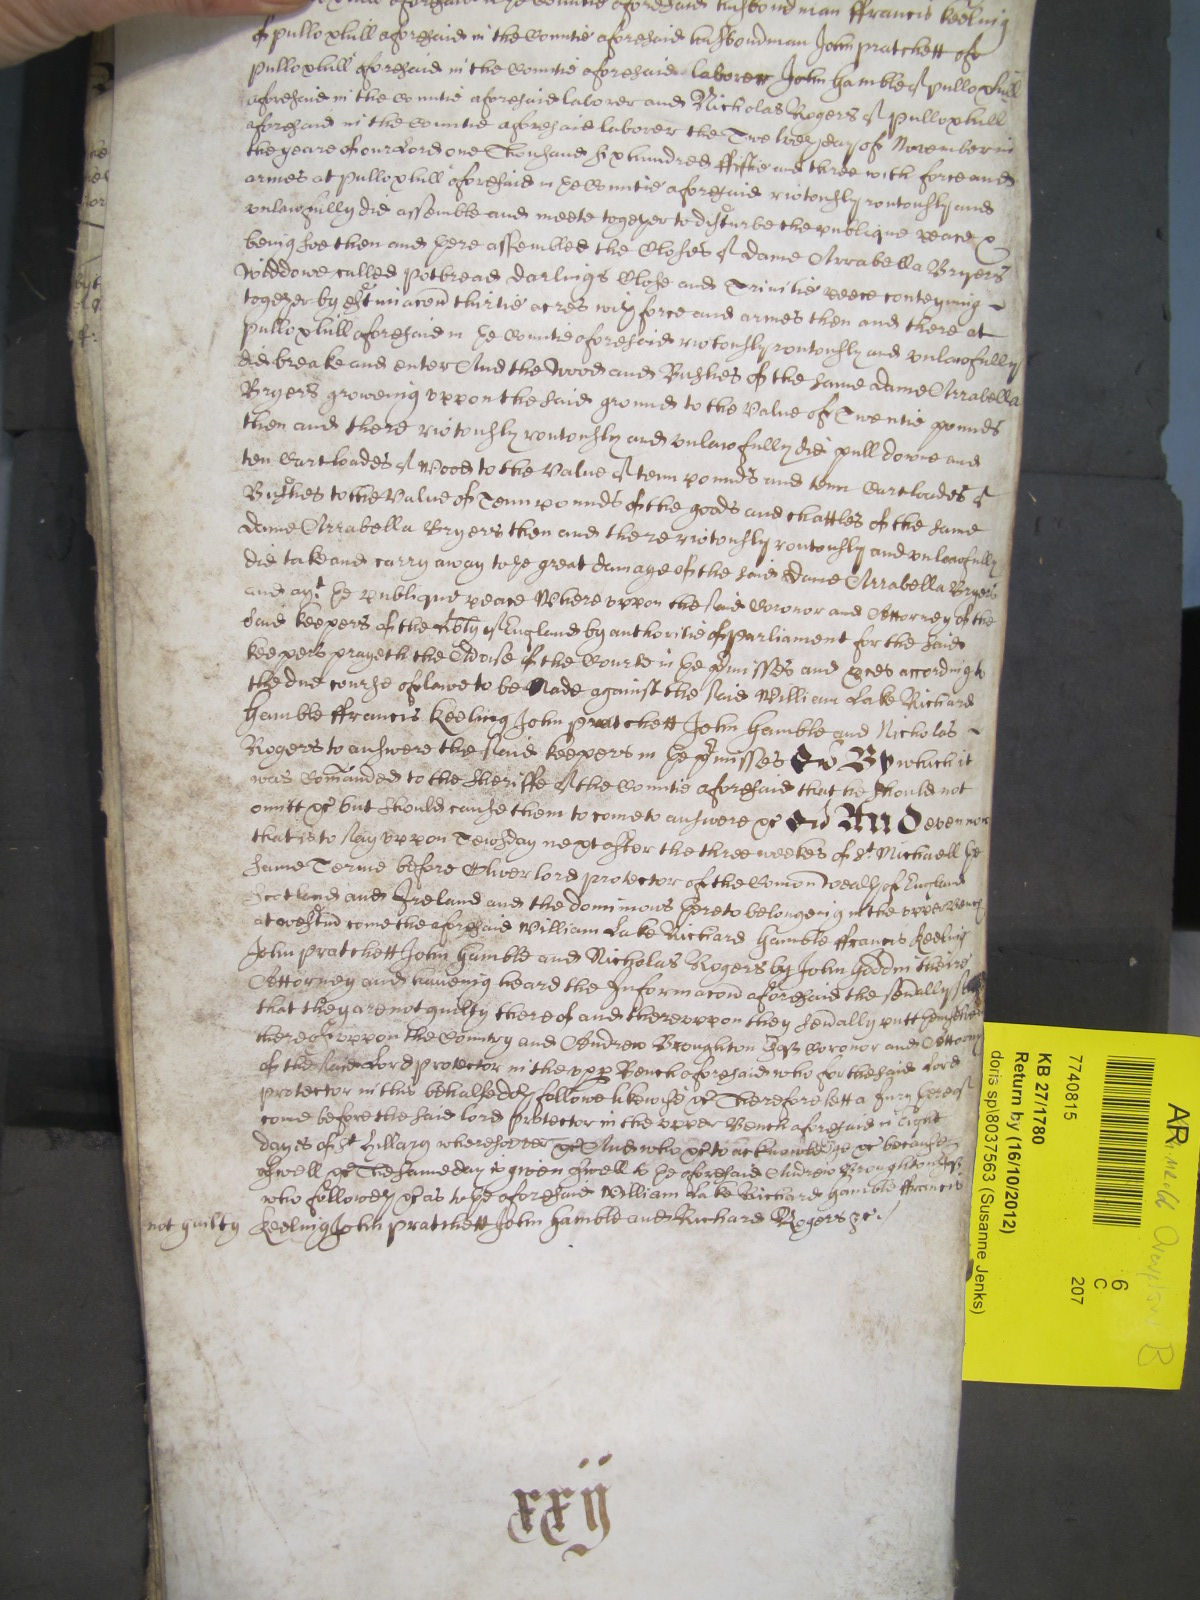 Pulloxhill aforesaid in the Countie aforesaid husbondman ffrancis Keeling
of Pulloxhill aforesaid in the Countie aforesaid husbondman John Pratchett of
Pulloxhill aforesaid in the Countie aforesaid laborer John Hamble of Pulloxhill
aforesaid in the Countie aforesaid laborer and Nicholas Rogers of Pulloxhill
aforesaid in the Countie aforesaid laborer the Twelveth day of November in
the yeare of our Lord one Thousand six hundred ffiftie and three with force and
armes at Pulloxhill aforesaid in the Countie aforesaid riotously routously and
unlawfully did assemble and meete together to disturbe the publique peace &
being soe then and there assembled the Closes of dame Arrabella Bryers
Widdowe called Potbread darlings Close and Trinitie peece conteyning
together by estimacon thirtie acres with force and armes then and there at
Pulloxhill aforesaid in the Countie aforesaid riotously routously and unlawfully
did breake and enter And the Wood and Bushes of the same dame Arrabella
Bryers groweing uppon the said ground to the value of Twentie pounds
then and there riotously routously and unlawfully did pull downe and
ten Cart loades of Wood to the value of tenn pounds and tenn Cart loades of
Bushes to the value of Tenn pounds of the goods and chattles of the same
dame Arrabella Bryers then and there riotously routously and unlawfully
did take and carry away to the great damage of the said dame Arrabella Bryers
and agt the publique peace Whereuppon the said Coronor and Attorney of the
said keepers of the libty of England by authoritie of Parliament for the said
keepers prayeth the Advise of the Courte in the pmisses and pces according to
the due course of lawe to be Made against the said William Lake Richard
Hamble ffrancis Keeling John Pratchett John Hamble and Nicholas
Rogers to answere the said keepers in the pmisses &c By which it
was Comanded to the Sheriffe of the Countie aforesaid that he should not
omitt &c but should cause them to come to answere &c And even now
that is to say uppon Tewsday next after the three weekes of St Michaell the
same Terme before Oliver lord protector of the Comonwealth of England
Scotland and Ireland and the dominions thereto belonging in the upper Bench
at Westm come the aforesaid William Lake Richard Hamble ffrancis Keeling
John Pratchett John Hamble and Nicholas Rogers by John Gaddin theire
Attorney and haveing heard the Informacon aforesaid the sevally say
that they are not guilty thereof and thereuppon they sevally putt themselves
thereof uppon the Country and Andrew Broughton Esq Coronor and Attorny
of the said Lord protector in the upp Bench aforesaid who for the said Lord
protector in this behalfe doth followe likewise &c Therefore lett a Jury thereof
come before the said lord Protector in the upper Bench aforesaid in Eight
dayes of St Hillary &c And who &c to acknowledge &c because
aswell &c The same day is given aswell to the aforesaid Andrew Broughton Esq
who followeth &c as to the aforesaid William Lake Richard Hamble ffrancis
not guilty Keeling John Pratchett John Hamble and Richard Rogers &c
xxij
7740815
KB 27/1780
Return by (16/10/2012)
doris sp\8037563 (Susanne Jenks)
6
C
207
AR
B